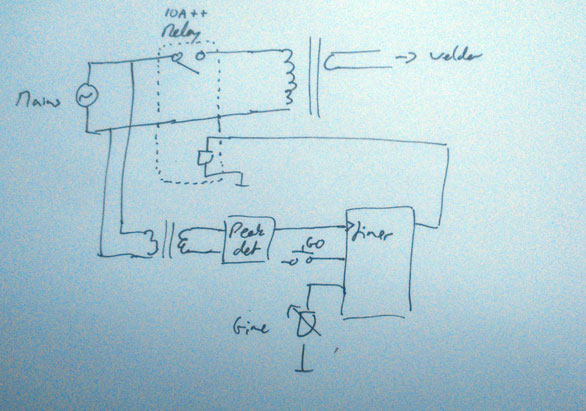 10A++
Relay
Mains
→ welder
Peak
det
GO
timer
Time